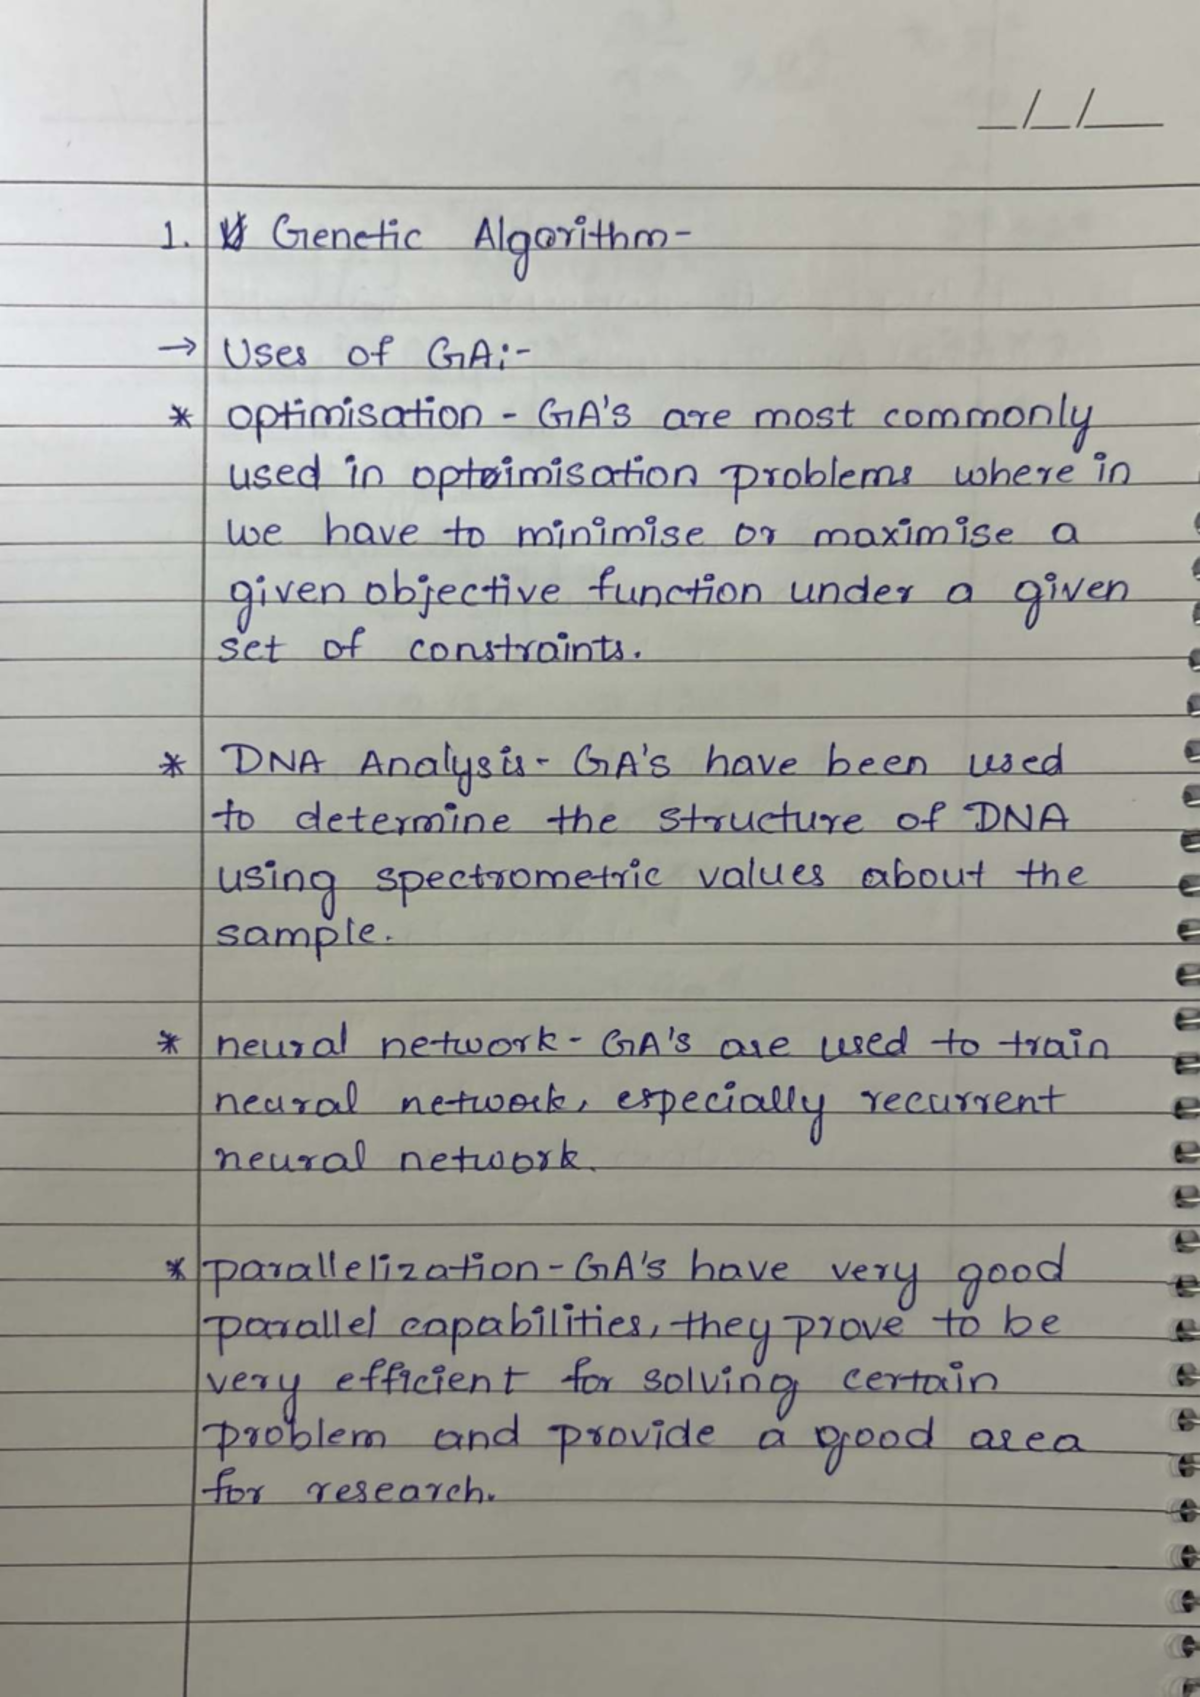 _/_/__
1. Genetic Algorithm-
→ Uses of GA:-
* optimisation - GA's are most commonly
used in optimisation problems where in
we have to minimise or maximise a
given objective function under a given
set of constraints.
* DNA Analysis- GA's have been used
to determine the structure of DNA
using spectrometric values about the
sample.
* neural network - GA's are used to train
neural network, especially recurrent
neural network.
* parallelization - GA's have very good
parallel capabilities, they prove to be
very efficient for solving certain
problem and provide a good area
for research.